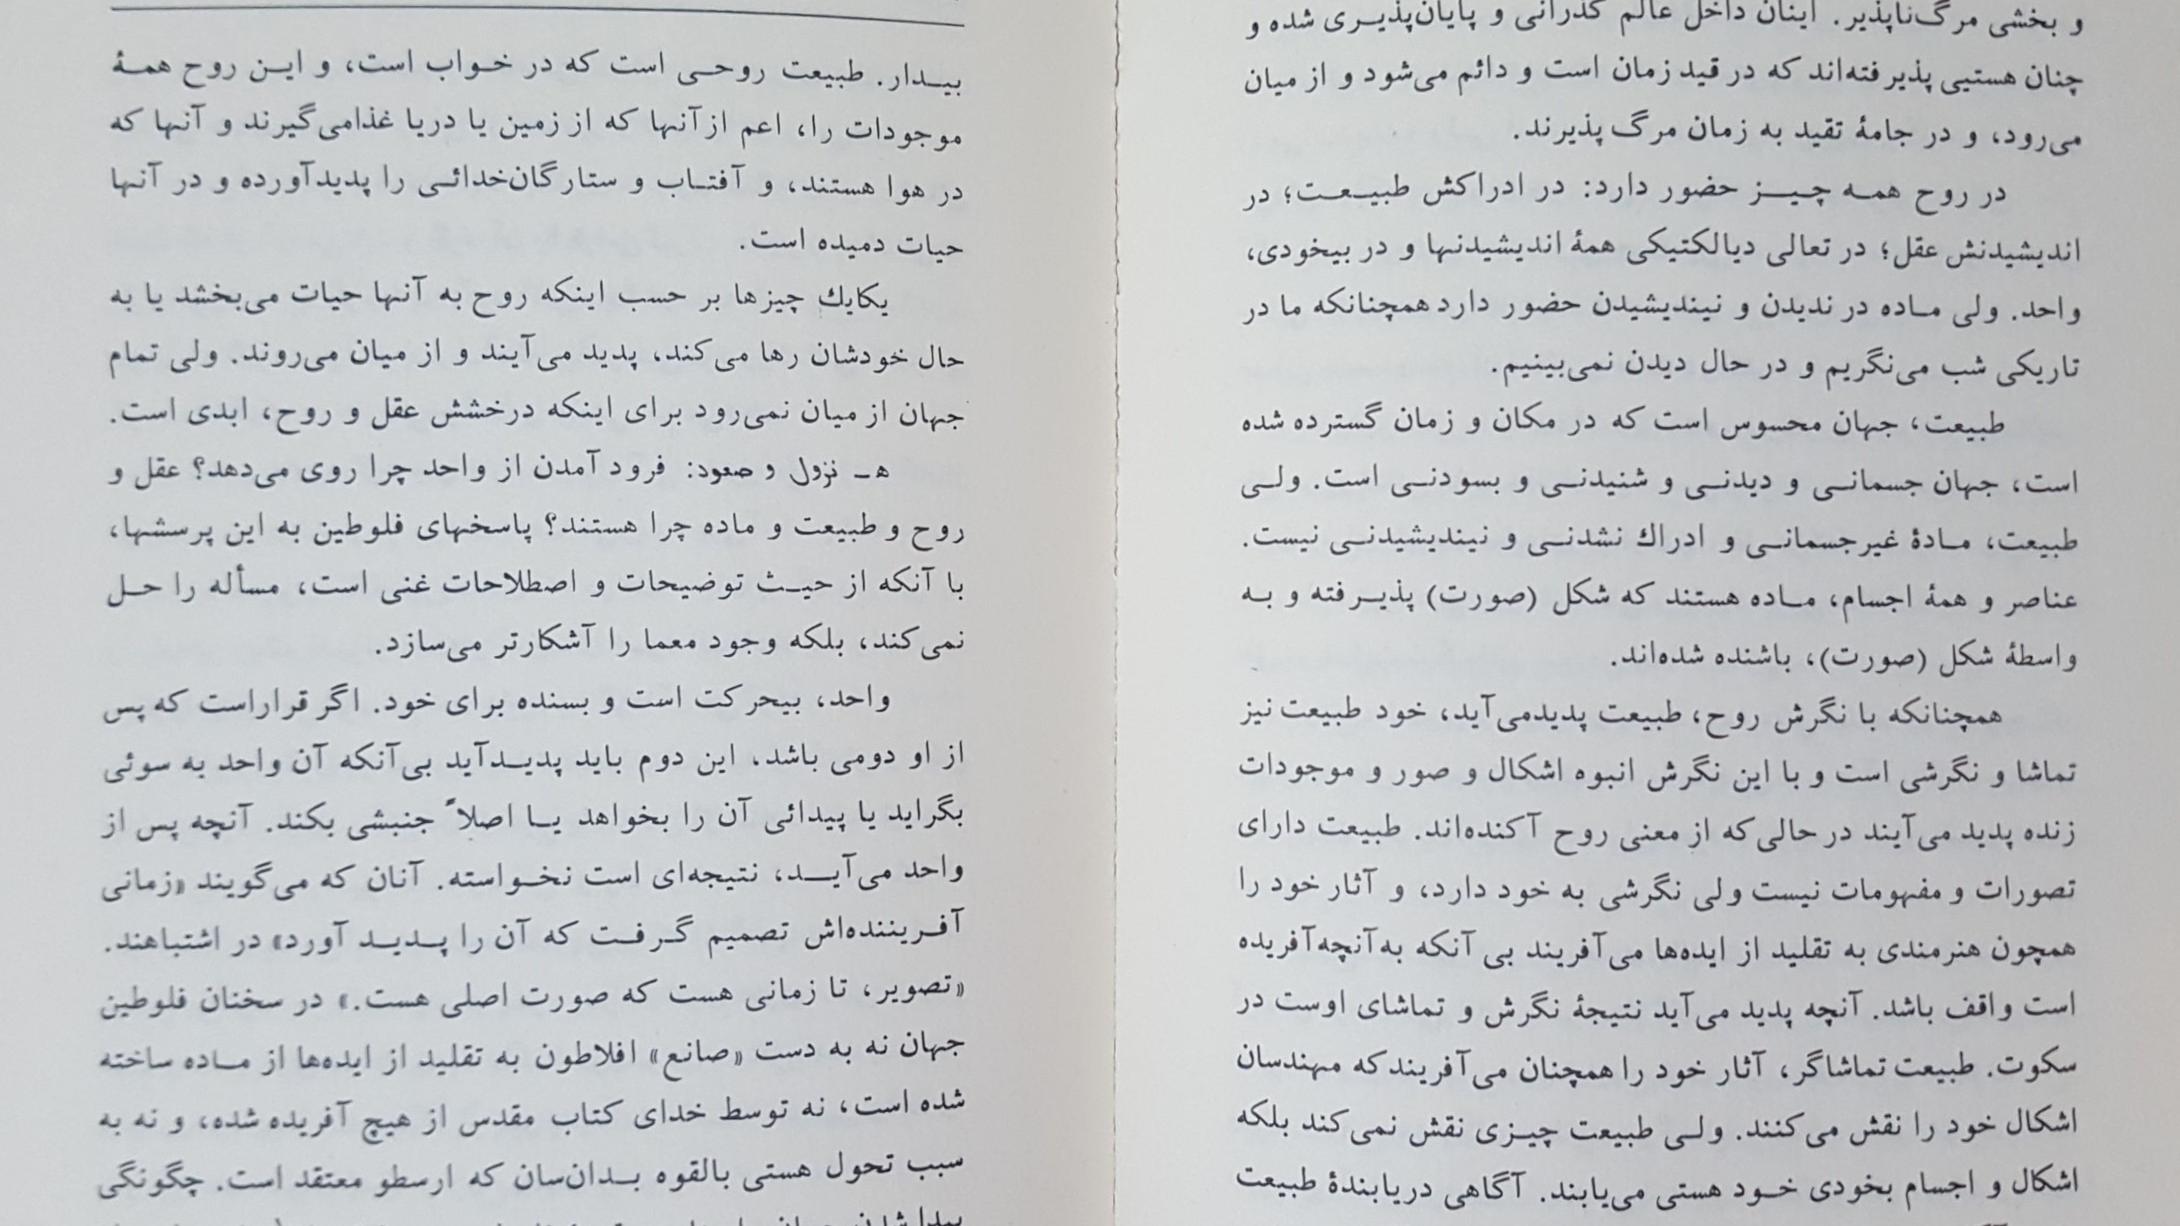 و بخشی مرگ‌ناپذیر. اینان داخل عالم گذرانی و پایان‌پذیری شده و
چنان هستیی پذیرفته‌اند که در قید زمان است و دائم می‌شود و از میان
می‌رود، و در جامهٔ تقید به زمان مرگ پذیرند.
در روح همه چیز حضور دارد: در ادراکش طبیعت؛ در
اندیشیدنش عقل؛ در تعالی دیالکتیکی همهٔ اندیشیدنها و در بیخودی،
واحد. ولی ماده در ندیدن و نیندیشیدن حضور دارد همچنانکه ما در
تاریکی شب می‌نگریم و در حال دیدن نمی‌بینیم.
طبیعت، جهان محسوس است که در مکان و زمان گسترده شده
است، جهان جسمانی و دیدنی و شنیدنی و بسودنی است. ولی
طبیعت، مادهٔ غیرجسمانی و ادراك نشدنی و نیندیشیدنی نیست.
عناصر و همهٔ اجسام، ماده هستند که شکل (صورت) پذیرفته و به
واسطهٔ شکل (صورت)، باشنده شده‌اند.
همچنانکه با نگرش روح، طبیعت پدیدمی‌آید، خود طبیعت نیز
تماشا و نگرشی است و با این نگرش انبوه اشکال و صور و موجودات
زنده پدید می‌آیند در حالی‌که از معنی روح آکنده‌اند. طبیعت دارای
تصورات و مفهومات نیست ولی نگرشی به خود دارد، و آثار خود را
همچون هنرمندی به تقلید از ایده‌ها می‌آفریند بی آنکه به‌آنچه‌آفریده
است واقف باشد. آنچه پدید می‌آید نتیجهٔ نگرش و تماشای اوست در
سکوت. طبیعت تماشاگر، آثار خود را همچنان می‌آفریند که مهندسان
اشکال خود را نقش می‌کنند. ولی طبیعت چیزی نقش نمی‌کند بلکه
اشکال و اجسام بخودی خود هستی می‌یابند. آگاهی دریابندهٔ طبیعت
بیدار. طبیعت روحی است که در خواب است، و این روح همهٔ
موجودات را، اعم ازآنها که از زمین یا دریا غذامی‌گیرند و آنها که
در هوا هستند، و آفتاب و ستارگان‌خدائی را پدیدآورده و در آنها
حیات دمیده است.
یکایك چیزها بر حسب اینکه روح به آنها حیات می‌بخشد یا به
حال خودشان رها می‌کند، پدید می‌آیند و از میان می‌روند. ولی تمام
جهان از میان نمی‌رود برای اینکه درخشش عقل و روح، ابدی است.
ه‍ ـ نزول و صعود: فرود آمدن از واحد چرا روی می‌دهد؟ عقل و
روح و طبیعت و ماده چرا هستند؟ پاسخهای فلوطین به این پرسشها،
با آنکه از حیث توضیحات و اصطلاحات غنی است، مسأله را حل
نمی‌کند، بلکه وجود معما را آشکارتر می‌سازد.
واحد، بیحرکت است و بسنده برای خود. اگر قراراست که پس
از او دومی باشد، این دوم باید پدیدآید بی‌آنکه آن واحد به سوئی
بگراید یا پیدائی آن را بخواهد یا اصلاً جنبشی بکند. آنچه پس از
واحد می‌آید، نتیجه‌ای است نخواسته. آنان که می‌گویند «زمانی
آفریننده‌اش تصمیم گرفت که آن را پدید آورد» در اشتباهند.
«تصویر، تا زمانی هست که صورت اصلی هست.» در سخنان فلوطین
جهان نه به دست «صانع» افلاطون به تقلید از ایده‌ها از ماده ساخته
شده است، نه توسط خدای کتاب مقدس از هیچ آفریده شده، و نه به
سبب تحول هستی بالقوه بدان‌سان که ارسطو معتقد است. چگونگی